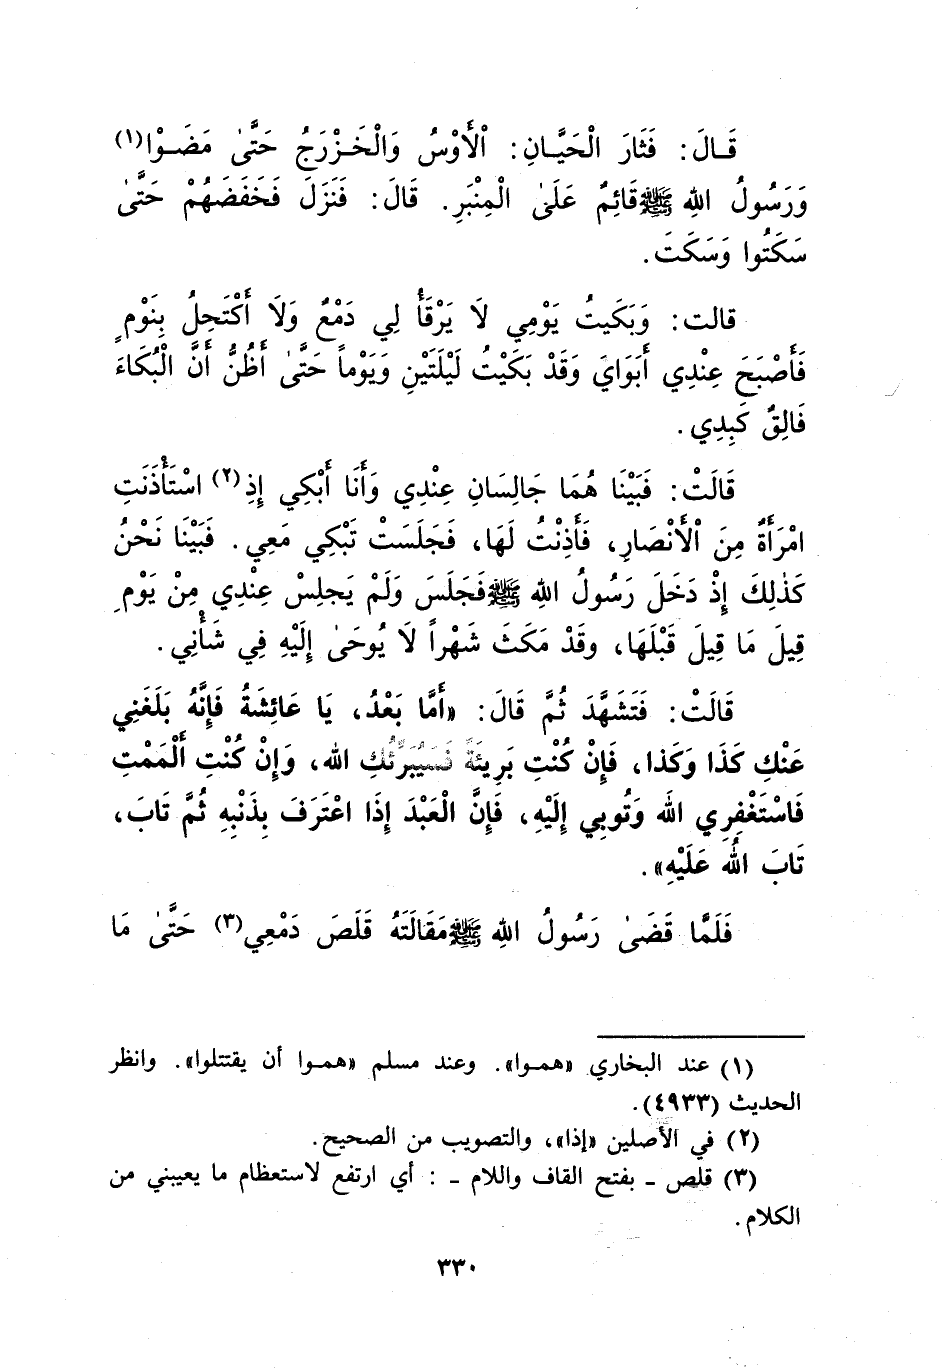 قَـالَ: فَثَارَ الْحَيَّـانِ: اْلأَوْسُ وَالْخَـزْرَجُ حَتَّىٰ مَضَـوْا(١)
وَرَسُولُ اللهِ ﷺ قَائِمٌ عَلَىٰ الْمِنْبَرِ. قَالَ: فَنَزَلَ فَخَفَضَهُمْ حَتَّىٰ
سَكَتُوا وَسَكَتَ.
قالت: وَبَكَيتُ يَوْمِي لَا يَرْقَأُ لِي دَمْعٌ وَلَا أَكْتَحِلُ بِنَوْمٍ
فَأَصْبَحَ عِنْدِي أَبَوَايَ وَقَدْ بَكَيْتُ لَيْلَتَيْنِ وَيَوْماً حَتَّىٰ أَظُنُّ أَنَّ الْبُكَاءَ
فَالِقٌ كَبِدِي.
قَالَتْ: فَبَيْنَا هُمَا جَالِسَانِ عِنْدِي وَأَنَا أَبْكِي إِذِ(٢) اسْتَأْذَنَتِ
امْرَأَةٌ مِنَ اْلأَنْصَارِ، فَأَذِنْتُ لَهَا، فَجَلَسَتْ تَبْكِي مَعِي. فَبَيْنَا نَحْنُ
كَذٰلِكَ إِذْ دَخَلَ رَسُولُ اللهِ ﷺ فَجَلَسَ وَلَمْ يَجلِسْ عِنْدِي مِنْ يَوْمِ
قِيلَ مَا قِيلَ قَبْلَهَا، وقَدْ مَكَثَ شَهْراً لَا يُوحَىٰ إِلَيْهِ فِي شَأْنِي.
قَالَتْ: فَتَشَهَّدَ ثُمَّ قَالَ: «أَمَّا بَعْدُ، يَا عَائِشَةُ فَإِنَّهُ بَلَغَنِي
عَنْكِ كَذَا وَكَذا، فَإِنْ كُنْتِ بَرِيئَةً فَسَيُبَرِّئُكِ الله، وَإِنْ كُنْتِ أَلْمَمْتِ
فَاسْتَغْفِرِي اللهَ وَتُوبِي إِلَيْهِ، فَإِنَّ الْعَبْدَ إِذَا اعْتَرَفَ بِذَنْبِهِ ثُمَّ تَابَ،
تَابَ اللهُ عَلَيْهِ».
فَلَمَّا قَضَىٰ رَسُولُ اللهِ ﷺ مَقَالَتَهُ قَلَصَ دَمْعِي(٣) حَتَّىٰ مَا
(١) عند البخاري «همـوا». وعند مسلم «همـوا أن يقتتلوا». وانظر
الحديث (٤٩٣٣).
(٢) في الأصلين «إذا»، والتصويب من الصحيح.
(٣) قلص ـ بفتح القاف واللام ـ : أي ارتفع لاستعظام ما يعيبني من
الكلام.
٣٣٠